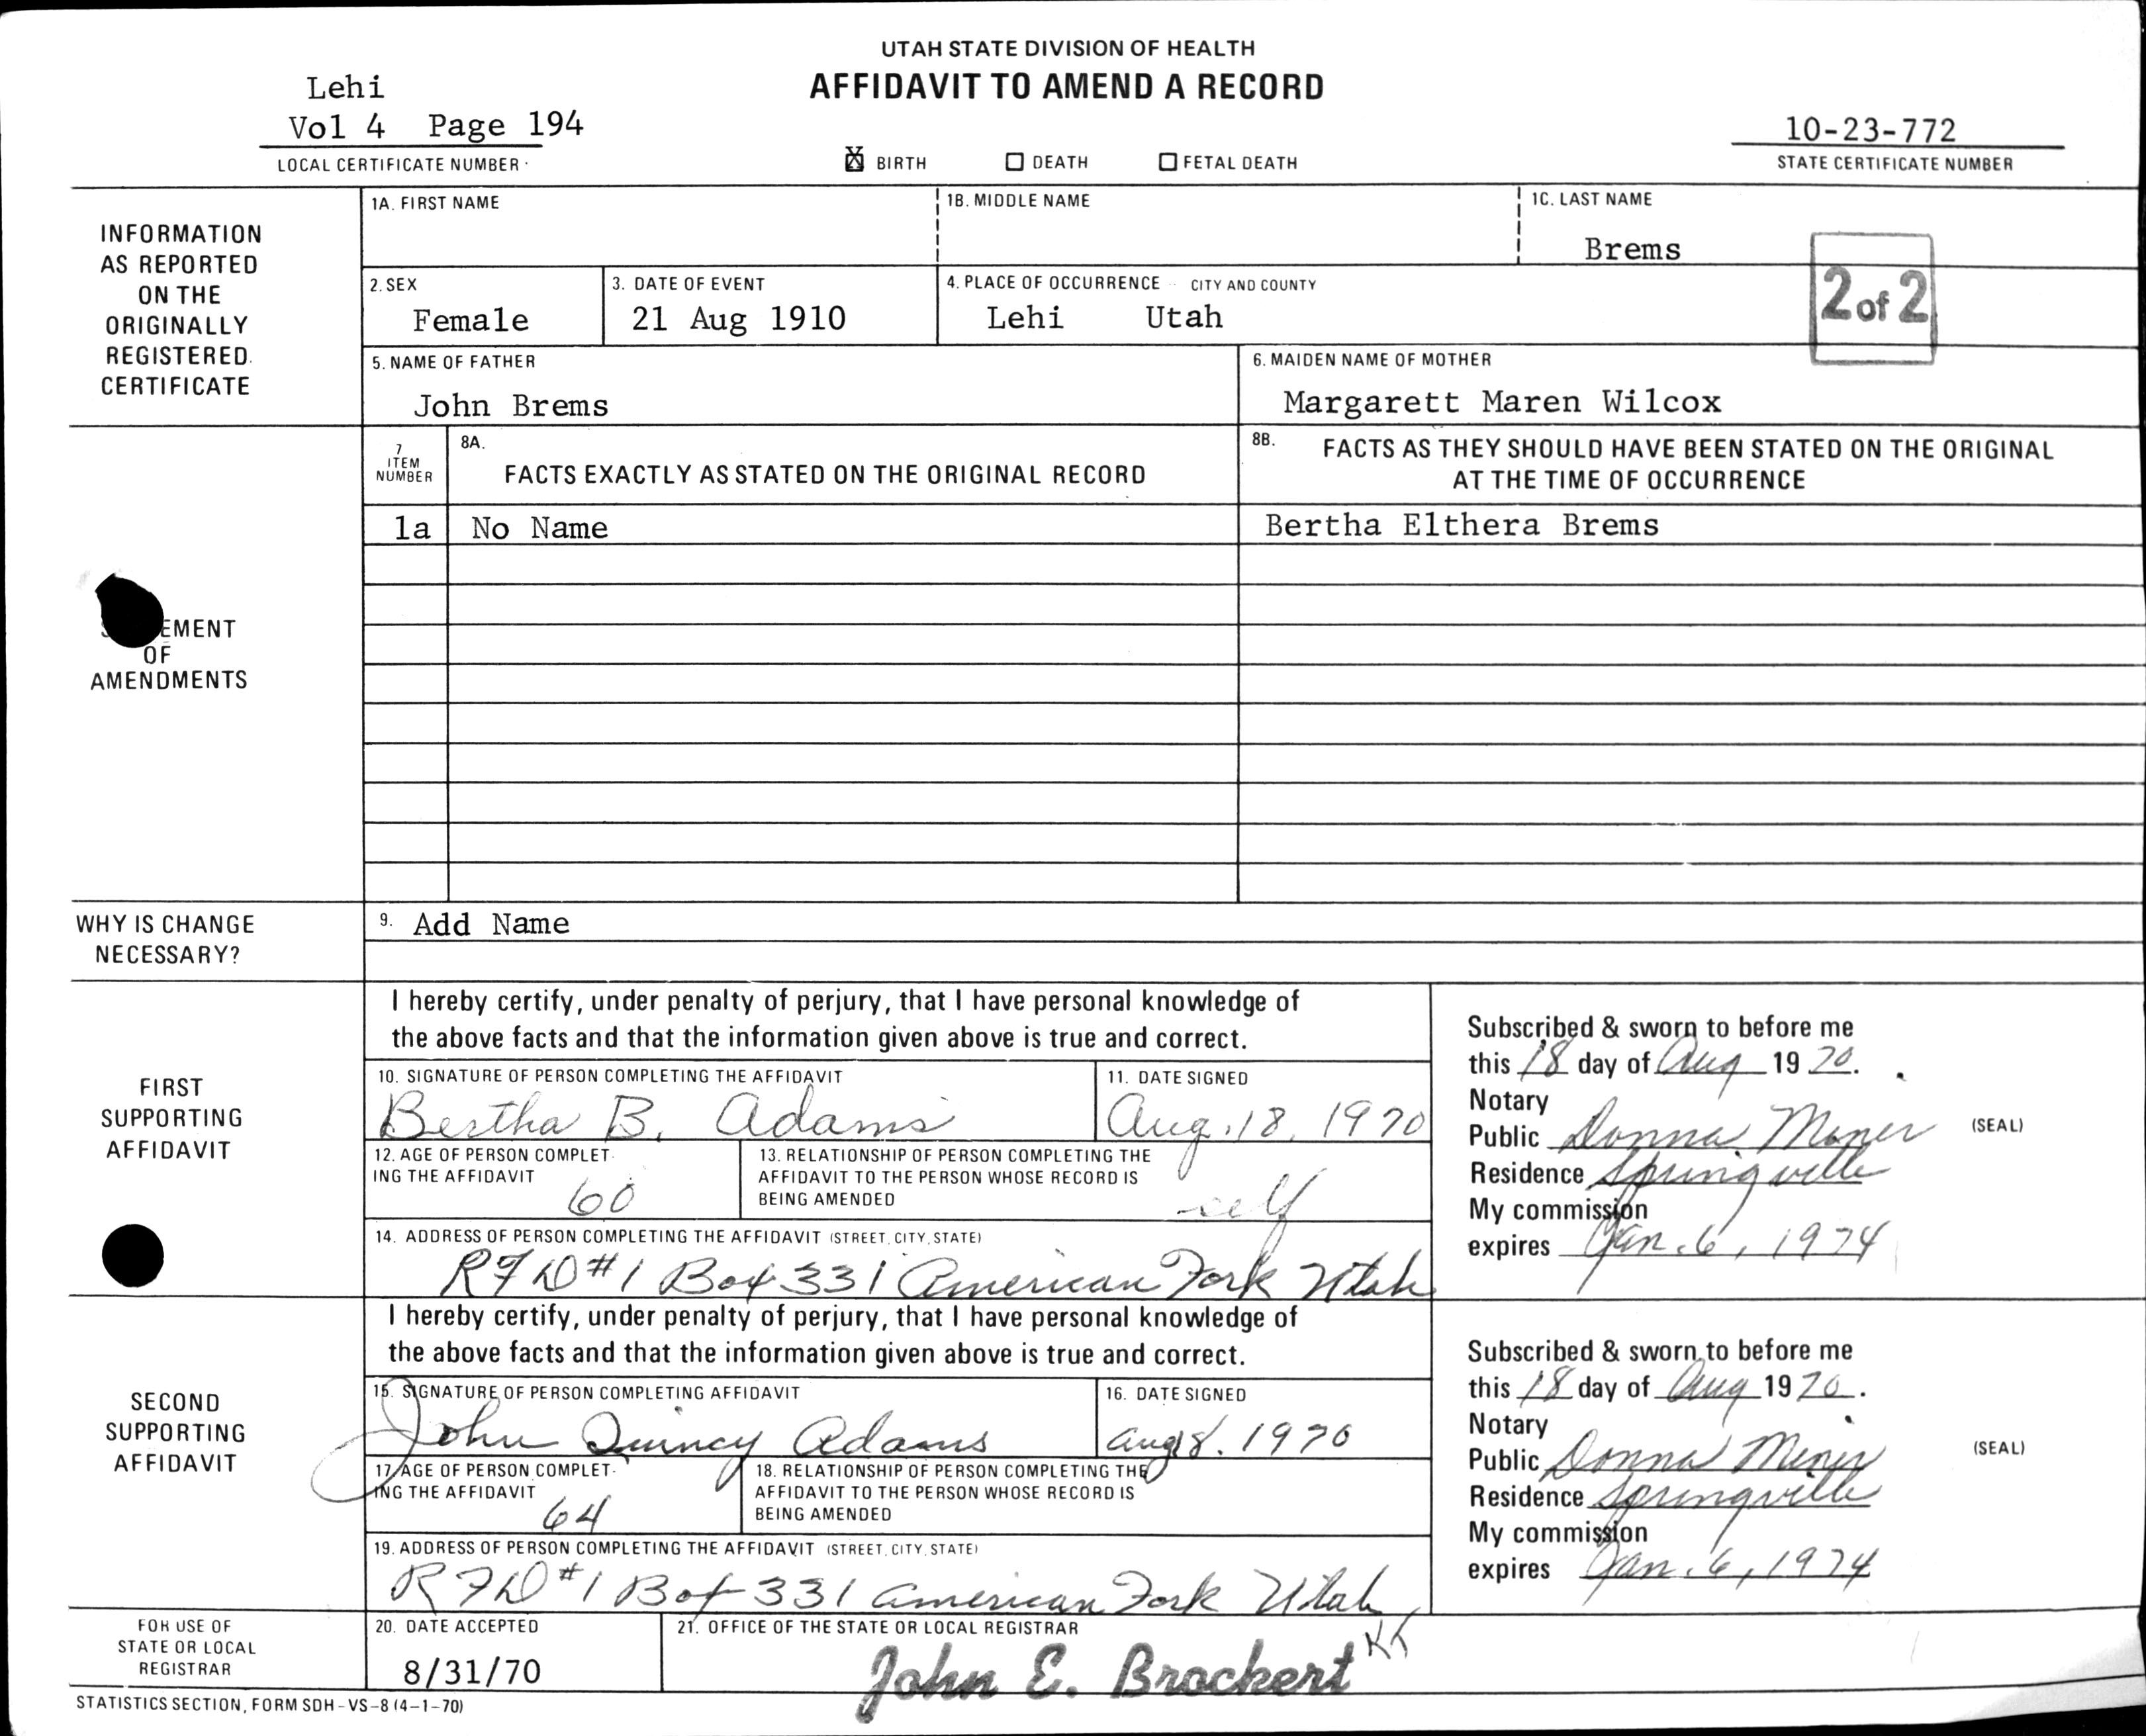 UTAH STATE DIVISION OF HEALTH
AFFIDAVIT TO AMEND A RECORD
Lehi
Vol 4 Page 194
LOCAL CERTIFICATE NUMBER
X BIRTH DEATH FETAL DEATH
10-23-772
STATE CERTIFICATE NUMBER
INFORMATION
AS REPORTED
ON THE
ORIGINALLY
REGISTERED
CERTIFICATE
1A. FIRST NAME
1B. MIDDLE NAME
1C. LAST NAME
Brems
2 of 2
2. SEX
Female
3. DATE OF EVENT
21 Aug 1910
4. PLACE OF OCCURRENCE CITY AND COUNTY
Lehi Utah
5. NAME OF FATHER
John Brems
6. MAIDEN NAME OF MOTHER
Margarett Maren Wilcox
EMENT
OF
AMENDMENTS
7
ITEM
NUMBER
8A.
FACTS EXACTLY AS STATED ON THE ORIGINAL RECORD
8B. FACTS AS THEY SHOULD HAVE BEEN STATED ON THE ORIGINAL
AT THE TIME OF OCCURRENCE
1a No Name Bertha Elthera Brems
WHY IS CHANGE
NECESSARY?
9. Add Name
FIRST
SUPPORTING
AFFIDAVIT
I hereby certify, under penalty of perjury, that I have personal knowledge of
the above facts and that the information given above is true and correct.
10. SIGNATURE OF PERSON COMPLETING THE AFFIDAVIT
Bertha B. Adams
11. DATE SIGNED
Aug. 18, 1970
12. AGE OF PERSON COMPLET-
ING THE AFFIDAVIT
60
13. RELATIONSHIP OF PERSON COMPLETING THE
AFFIDAVIT TO THE PERSON WHOSE RECORD IS
BEING AMENDED
self
14. ADDRESS OF PERSON COMPLETING THE AFFIDAVIT (STREET, CITY, STATE)
RFD #1 Box 331 American Fork Utah
Subscribed & sworn to before me
this 18 day of Aug 1970.
Notary
Public Donna Miner (SEAL)
Residence Springville
My commission
expires Jan. 6, 1974
SECOND
SUPPORTING
AFFIDAVIT
I hereby certify, under penalty of perjury, that I have personal knowledge of
the above facts and that the information given above is true and correct.
15. SIGNATURE OF PERSON COMPLETING AFFIDAVIT
John Quincy Adams
16. DATE SIGNED
Aug 18. 1970
17. AGE OF PERSON COMPLET-
ING THE AFFIDAVIT
64
18. RELATIONSHIP OF PERSON COMPLETING THE
AFFIDAVIT TO THE PERSON WHOSE RECORD IS
BEING AMENDED
19. ADDRESS OF PERSON COMPLETING THE AFFIDAVIT (STREET, CITY, STATE)
RFD #1 Box 331 American Fork Utah
Subscribed & sworn to before me
this 18 day of Aug 1970.
Notary
Public Donna Miner (SEAL)
Residence Springville
My commission
expires Jan. 6, 1974
FOR USE OF
STATE OR LOCAL
REGISTRAR
20. DATE ACCEPTED
8/31/70
21. OFFICE OF THE STATE OR LOCAL REGISTRAR
John E. Brockert KT
STATISTICS SECTION, FORM SDH-VS-8 (4-1-70)